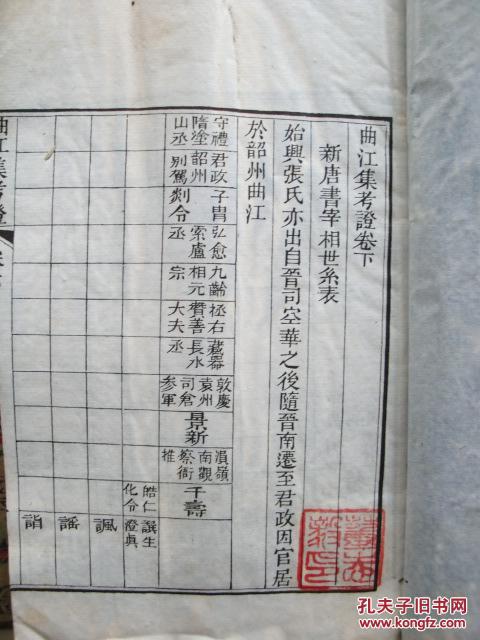 曲江集考證卷下
新唐書宰相世系表
始興張氏亦出自晉司空華之後隨晉南遷至君政因官居
於韶州曲江
守禮隋塗山丞
君政韶州別駕
子冑剡令
弘愈索盧丞
九齡相元宗
拯右贊善大夫
藏器長水丞
敦慶袁州司倉參軍
景新
涓嶺南觀察衙推
千壽
皓仁化令
諷
謡
詣
曲江集考證
孔夫子旧书网
www.kongfz.com